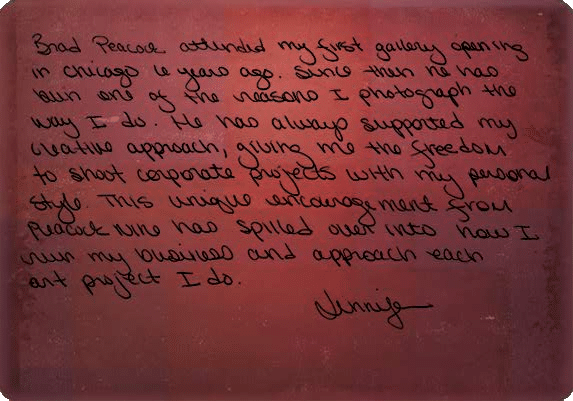 Brad Peacock attended my first gallery opening
in Chicago 16 years ago. Since then he has
been one of the reasons I photograph the
way I do. He has always supported my
creative approach, giving me the freedom
to shoot corporate projects with my personal
style. This unique encouragement from
Peacock Nine has spilled over into how I
run my business and approach each
art project I do.
Jennifer